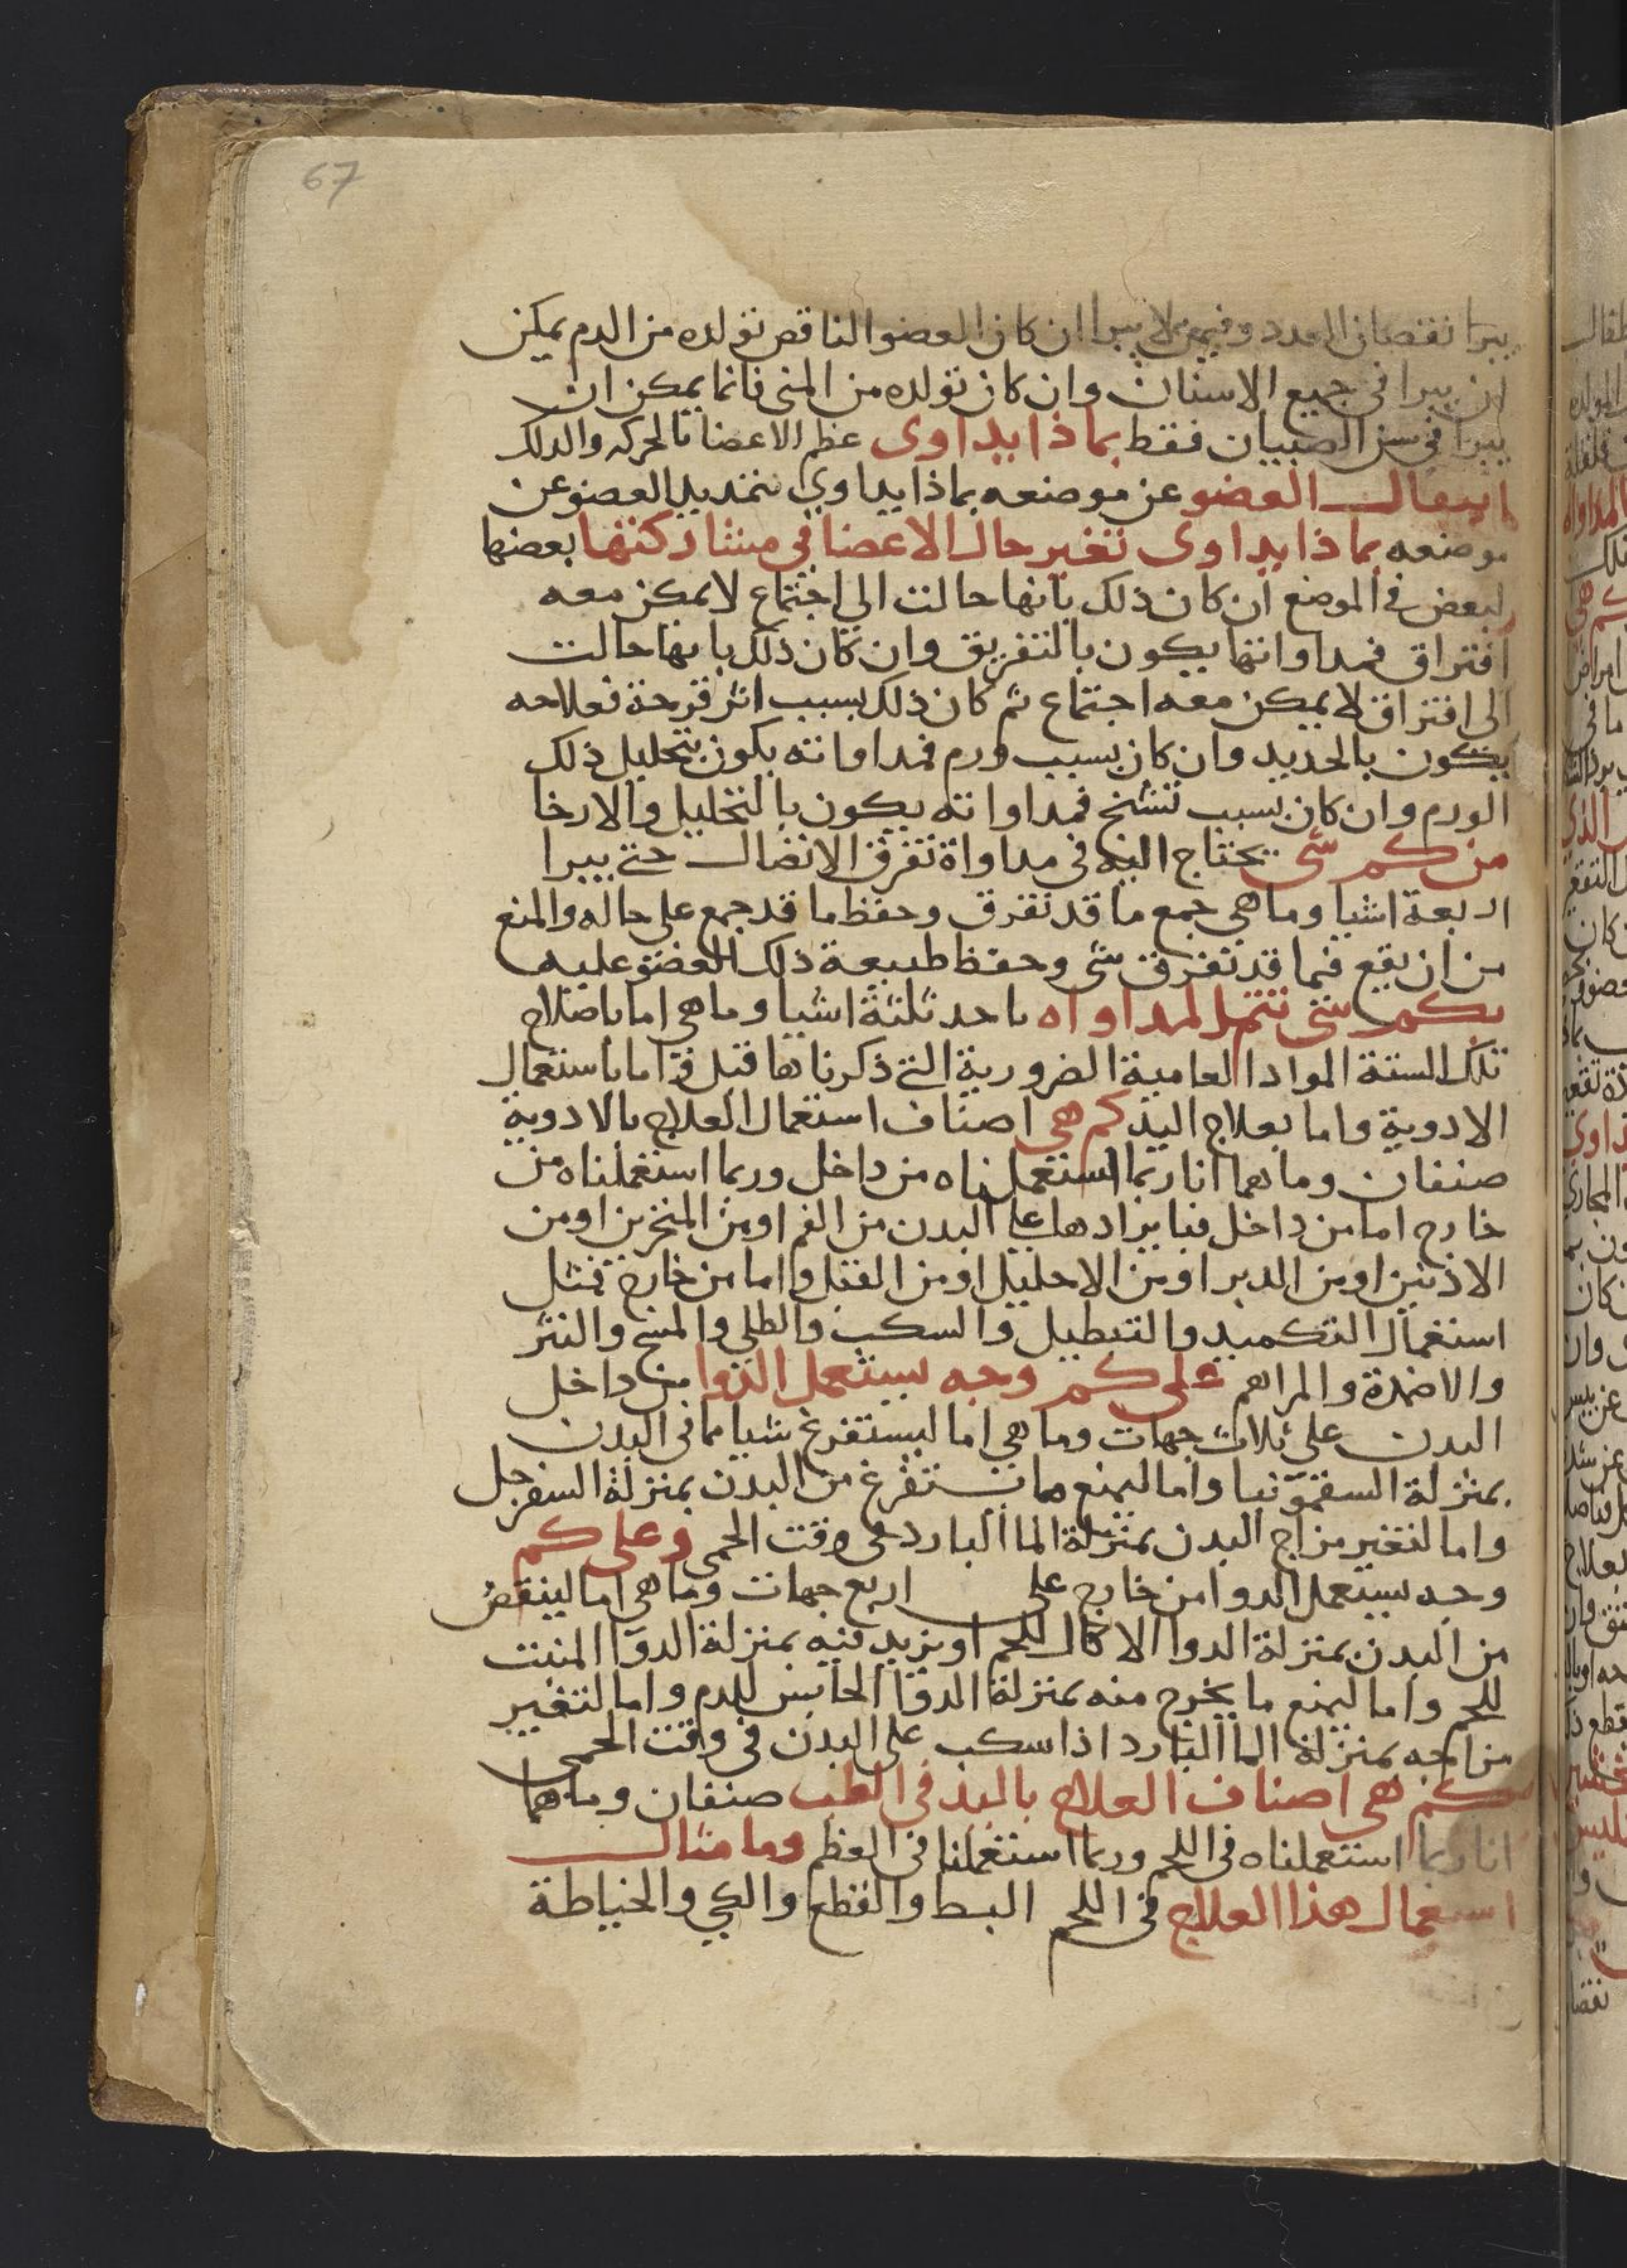 67
يبرا نقصان العدد وفيمن لا يبرا ان كان العضو الناقص تولده من الدم يمكن
ان يبرا في جميع الاسنان وان كان تولده من المني فانما يمكن ان
يبرا في سن الصبيان فقط بماذا يداوى عظم الاعضا بالحركه والدلك
انتقال العضو عن موضعه بماذا يداوي بتمديد العضو عن
موضعه بماذا يداوى تغير حال الاعضا في مشاركتها بعضها
لبعض في الموضع ان كان ذلك بانها حالت الى اجتماع لا يمكن معه
افتراق فمداواتها يكون بالتفريق وان كان ذلك بانها حالت
الى افتراق لا يمكن معه اجتماع ثم كان ذلك بسبب اثر قرحة فعلاجه
يكون بالحديد وان كان بسبب ورم فمداواته يكون بتحليل ذلك
الورم وان كان بسبب تشنج فمداواته يكون بالتحليل والارخا
من كم شي يحتاج اليه في مداواة تفرق الاتصال حتي يبرا
اربعة اشيا وما هي جمع ما قد تفرق وحفظ ما قد جمع على حاله والمنع
من ان يقع فيما قد تفرق شي وحفظ طبيعة ذلك العضو عليه
بكم شي تتم المداواه باحد ثلثة اشيا وما هي اما باصلاح
تلك الستة المواد العامية الضرورية التي ذكرناها قبل واما باستعمال
الادوية واما بعلاج اليد كم هي اصناف استعمال العلاج بالادوية
صنفان وما هما انا ربما استعملناه من داخل وربما استعملناه من
خارج اما من داخل فبايرادها علي البدن من الفم او من المنخرين او من
الاذنين او من الدبر او من الاحليل او من القبل واما من خارج فمثل
استعمال التكميد والتنطيل والسكب والطلي والمسح والنثر
والاضمدة والمراهم على كم وجه يستعمل الدوا من داخل
البدن على ثلاث جهات وما هي اما ليستفرغ شيا مما في البدن
بمنزلة السقمونيا واما ليمنع ما يستفرغ من البدن بمنزلة السفرجل
واما لتغير مزاج البدن بمنزلة الما البارد في وقت الحمى وعلى كم
وجه يستعمل الدوا من خارج على اربع جهات وما هي اما لينقص
من البدن بمنزلة الدوا الاكال للحم او يزيد فيه بمنزلة الدوا المنبت
للحم واما ليمنع ما يخرج منه بمنزلة الدوا الحابس للدم واما لتغير
مزاجه بمنزلة الما البارد اذا سكب على البدن في وقت الحمى
كم هي اصناف العلاج باليد في الطب صنفان وما هما
انا ربما استعملناه في اللحم وربما استعملنا في العظم وما مثال
استعمال هذا العلاج في اللحم البط والقطع والكي والخياطة